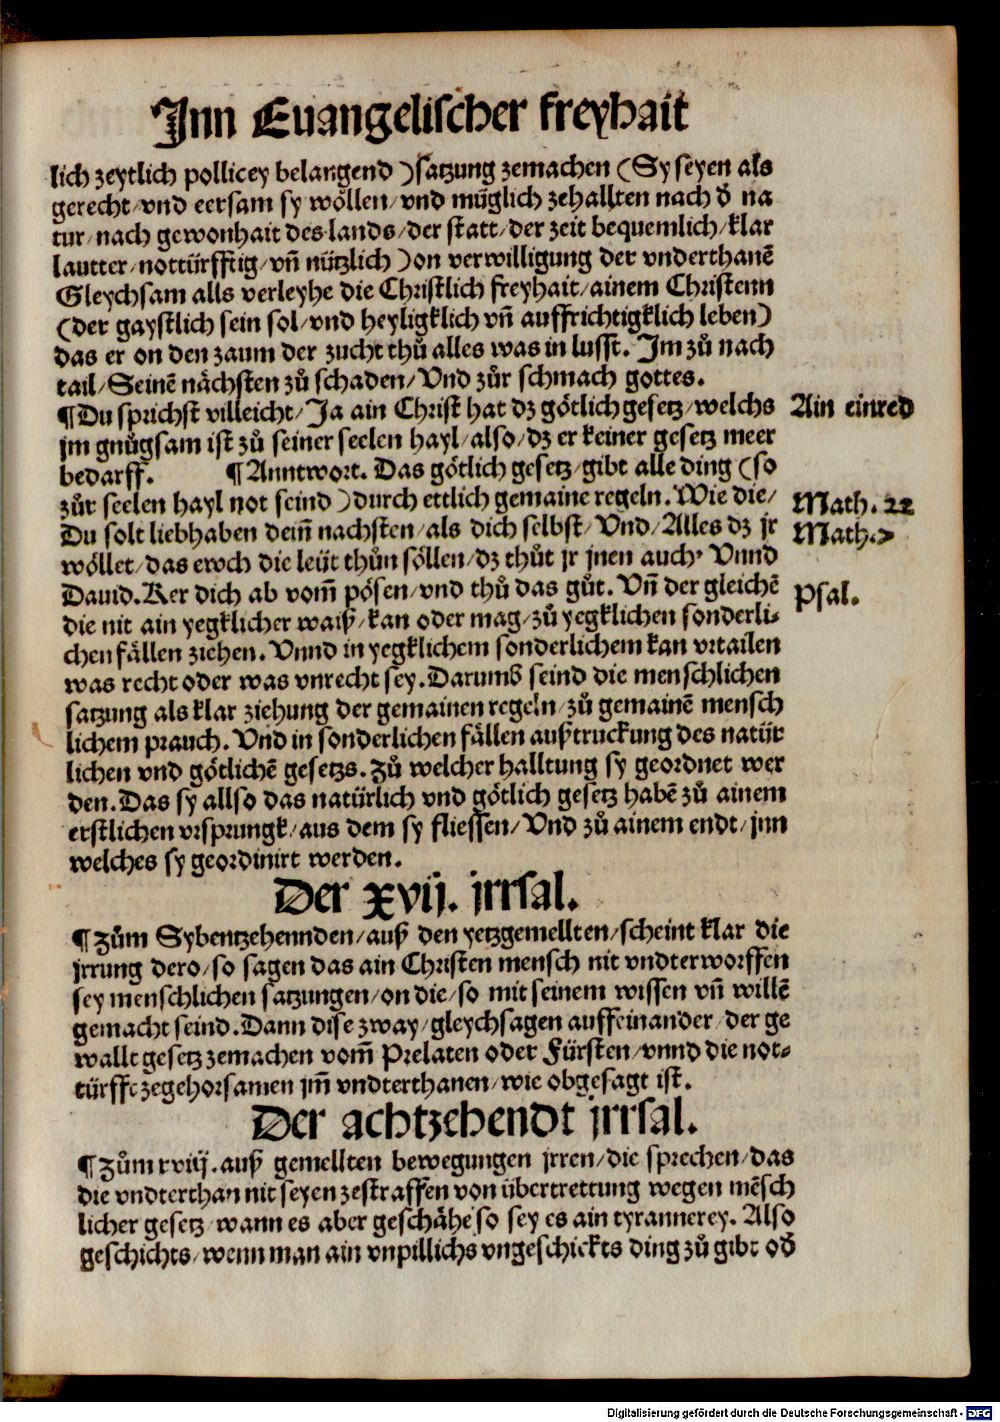 Jnn Euangelischer freyhait
lich zeytlich pollicey belangend )satzung zemachen (Sy seyen als
gerecht/vnd eersam sy wöllen/vnd müglich zehallten nach d̄ na
tur/nach gewonhait des lands/der statt/der zeit bequemlich/klar
lautter/nottürfftig/vn̄ nützlich )on verwilligung der vnderthanē
Gleychsam alls verleyhe die Christlich freyhait/ainem Christenn
(der gaystlich sein sol/vnd heyligklich vn̄ auffrichtigklich leben)
das er on den zaum der zucht thů alles was in lusst. Jm zů nach
tail/Seinē nächsten zů schaden/Vnd zůr schmach gottes.
¶Du sprichst villeicht/Ja ain Christ hat dz götlich gesetz/welchs
jm gnůgsam ist zů seiner seelen hayl/also/dz er keiner gesetz meer
bedarff. ¶Anntwort. Das götlich gesetz/gibt alle ding (so
zůr seelen hayl not seind )durch ettlich gemaine regeln. Wie die/
Du solt liebhaben dein̄ nachsten/als dich selbst/Vnd/Alles dz jr
wöllet/das ewch die leüt thůn söllen/dz thůt jr jnen auch. Vnnd
Dauid. Ker dich ab vom̄ pösen/vnd thů das gůt. Vn̄ der gleichē
die nit ain yegklicher waiß/kan oder mag/zů yegklichen sonderli-
chen fällen ziehen. Vnnd in yegklichem sonderlichem kan vrtailen
was recht oder was vnrecht sey. Darumb seind die menschlichen
satzung als klar ziehung der gemainen regeln/zů gemainē mensch
lichem prauch. Vnd in sonderlichen fällen außtruckung des natür
lichen vnd götlichē gesetzs. Zů welcher halltung sy geordnet wer
den. Das sy allso das natürlich vnd götlich gesetz habē zů ainem
erstlichen vrsprungk/aus dem sy fliessen/Vnd zů ainem endt/jnn
welches sy geordinirt werden.
Ain einred
Math. 22
Math. 7
Psal.
Der xvij. jrrsal.
¶Zům Sybentzehennden/auß den yetzgemellten/scheint klar die
jrrung dero/so sagen das ain Christen mensch nit vndterworffen
sey menschlichen satzungen/on die/so mit seinem wissen vn̄ willē
gemacht seind. Dann dise zway/gleychsagen auffeinander/der ge
wallt gesetz zemachen vom̄ Prelaten oder Fürsten/vnnd die not-
türfft zegehorsamen jm̄ vndterthanen/wie obgesagt ist.
Der achtzehendt jrrsal.
¶Zům xviij. auß gemellten bewegungen jrren/die sprechen/das
die vndterthan nit seyen zestraffen von übertrettung wegen mēsch
licher gesetz/wann es aber geschähe/so sey es ain tyrannerey. Also
geschichts/wenn man ain vnpillichs vngeschickts ding zů gibt od̄
Digitalisierung gefördert durch die Deutsche Forschungsgemeinschaft - DFG